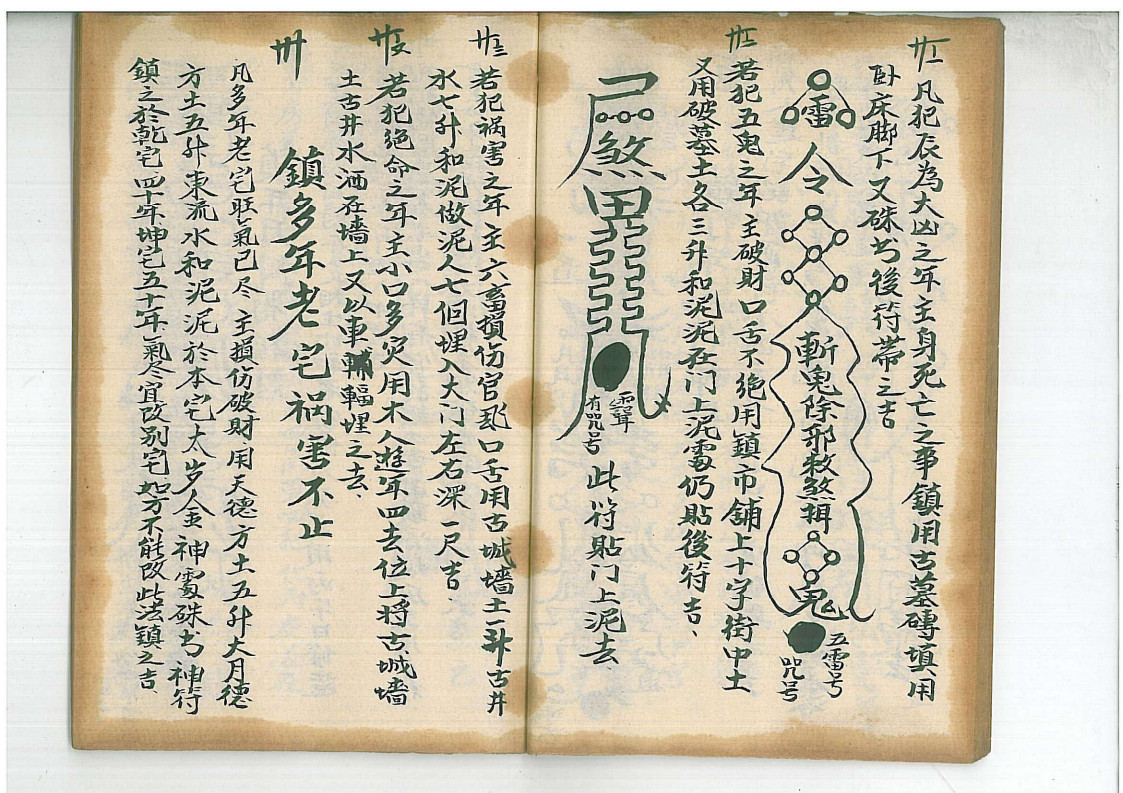 廿一
凡犯辰為大凶之年主身死亡之事鎮用古墓磚填用
卧床脚下又硃书後符带之吉
雷
令
斬鬼除邪救煞揖
鬼
五雷号
咒号
廿二
若犯五鬼之年主破财口舌不绝用鎮市舖上十字街中土
又用破墓土各三升和泥泥在门上泥處仍貼後符吉、
煞
有咒号
此符貼门上泥去
廿三
若犯祸害之年主六畜損伤官乱口舌用古城墙土一斗古井
水七升和泥做泥人七個埋入大门左右深一尺吉
若犯绝命之年主小口多灾用木人遊年四去位上将古城墙
土古井水洒在墙上又以車輔輻埋之去、
卅
鎮多年老宅祸害不止
凡多年老宅旺氣已尽主損伤破財用天德方土五升大月德
方土五升東流水和泥泥於本宅太岁金神處硃书神符
鎮之於乾宅四十年坤宅五十年氣尽宜改别宅如万不能改此法鎮之吉